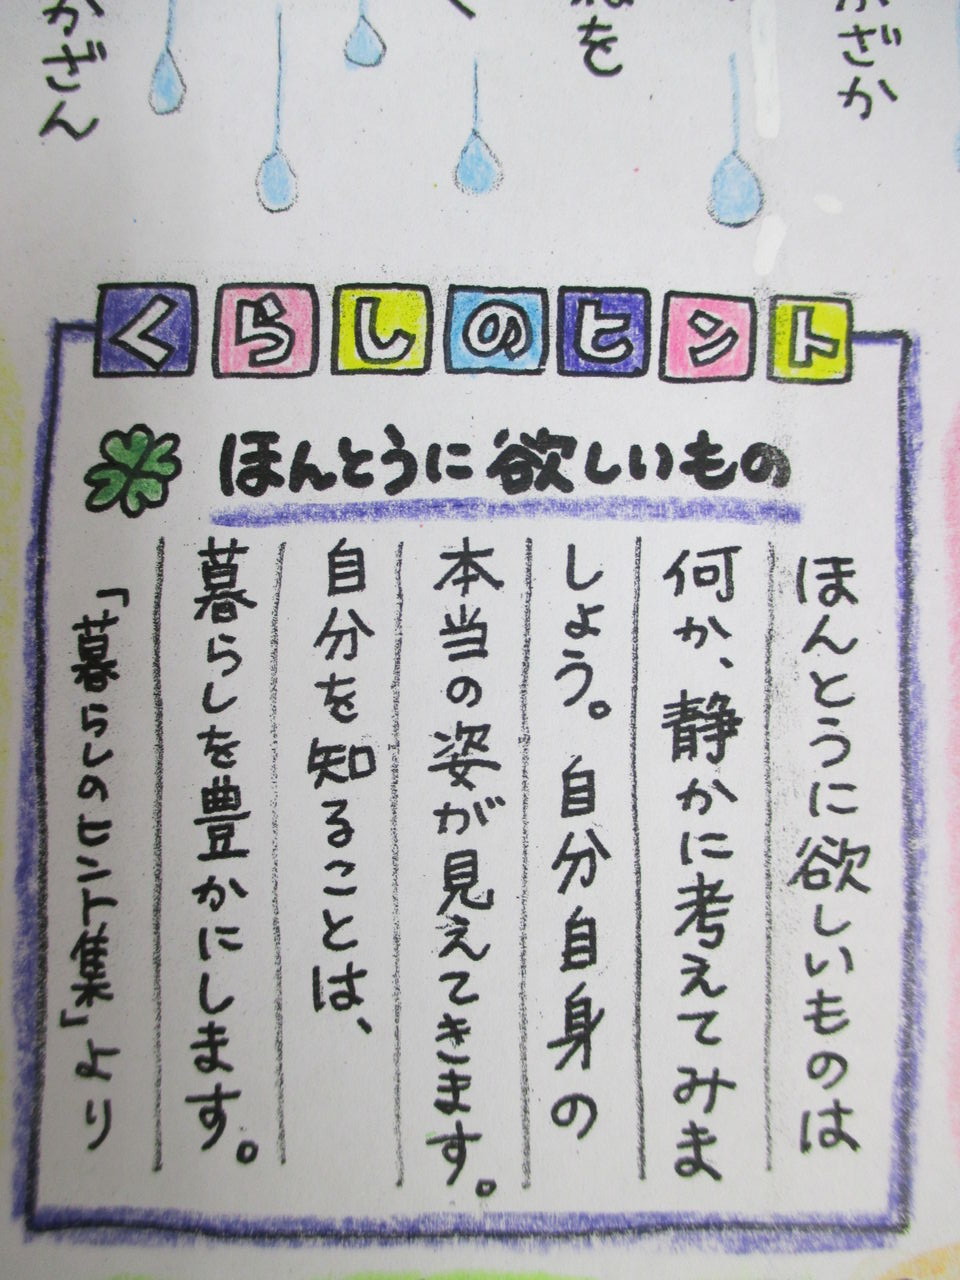 ざか
を
かざん
くらしのヒント
ほんとうに欲しいもの
ほんとうに欲しいものは
何か、静かに考えてみま
しょう。自分自身の
本当の姿が見えてきます。
自分を知ることは、
暮らしを豊かにします。
「暮らしのヒント集」より